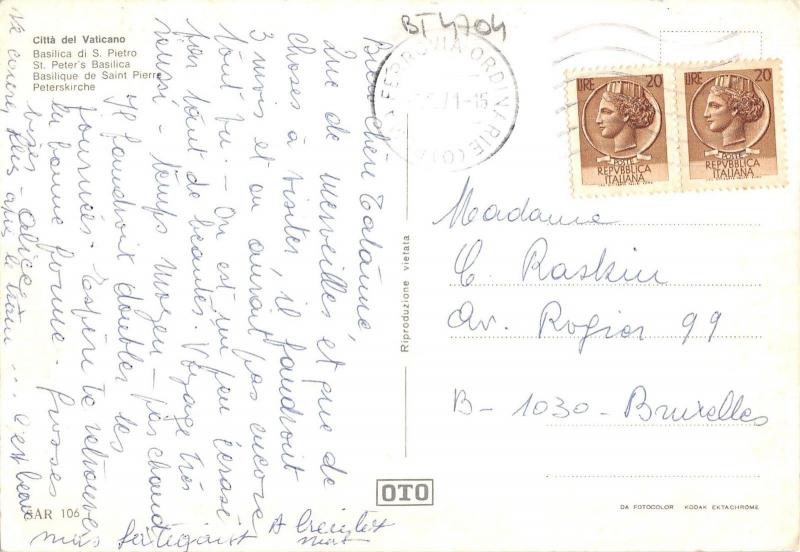 Città del Vaticano
Basilica di S. Pietro
St. Peter's Basilica
Basilique de Saint Pierre
Peterskirche
BT 4704
FERROVIA ORDINARIE
71-15
LIRE 20
POSTE
REPVBBLICA
ITALIANA
LIRE 20
POSTE
REPVBBLICA
ITALIANA
Bien chère Tatanne,
Que de merveilles et que de
choses à visiter il faudrait
3 mois et on aurait pas encore
tout vu. - On est un peu écrasé
par tant de beautés. Voyage très
réussi - temps moyen - pas chaud
Il faudrait doubler les
journées. Espère te retrouver
en bonne forme. Grosses
bises - Alice
c'est beau
mais fatigant
A
Riproduzione vietata
Madame
C. Raskin
Av. Rogier 99
B - 1030 - Bruxelles
OTO
SAR 106
DA FOTOCOLOR KODAK EKTACHROME